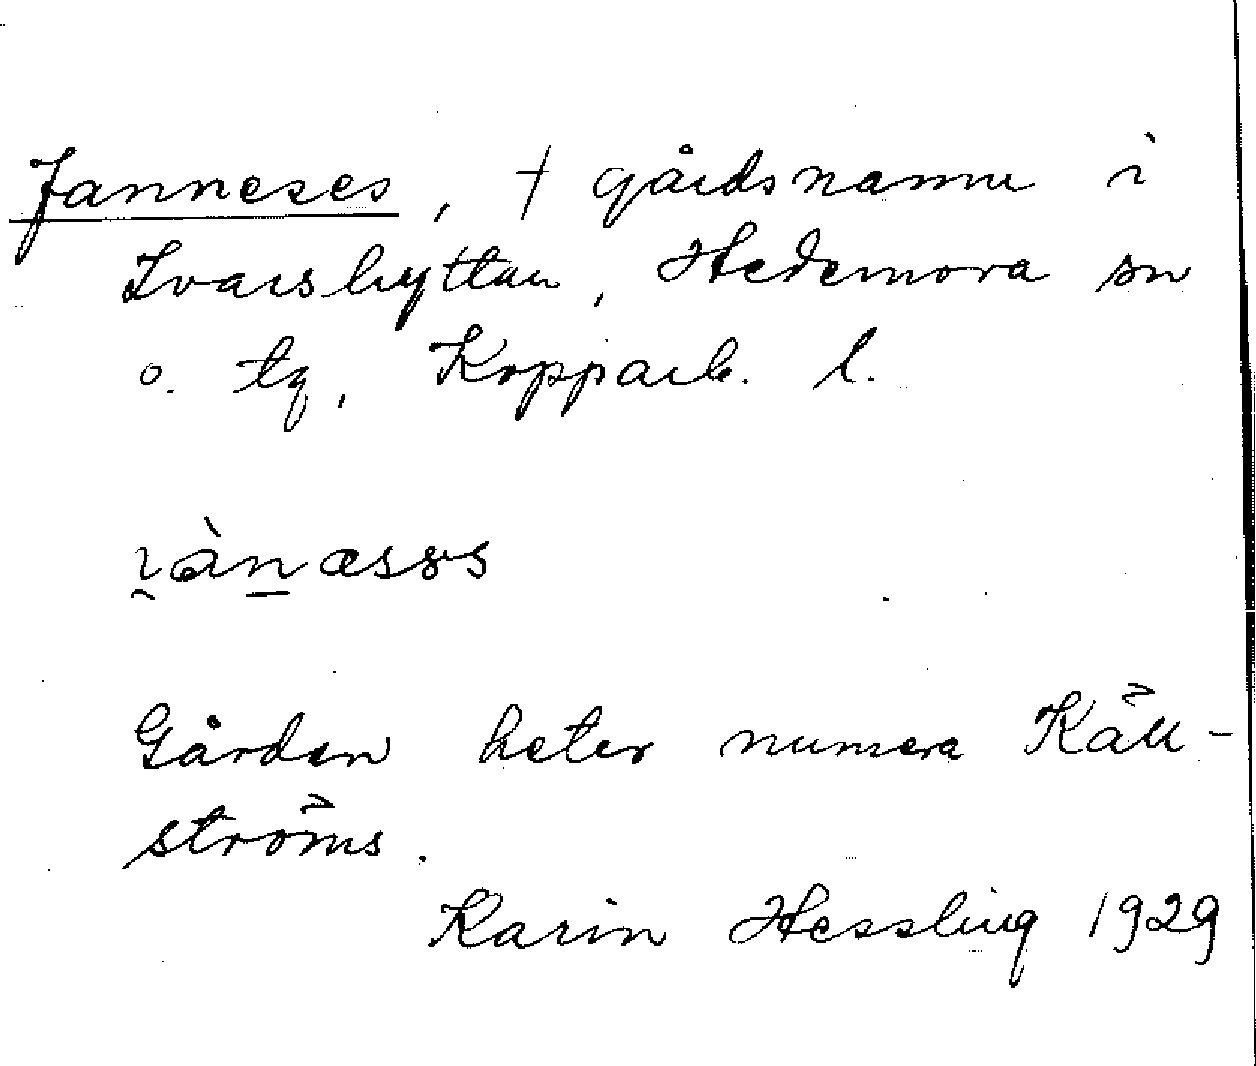 Janneses, † gårdsnamn i
Ivarshyttan, Hedemora sn
o. tg, Kopparb. l.
i̯ànæsəs
Gården heter numera Käll-
ströms.
Karin Hessling 1929